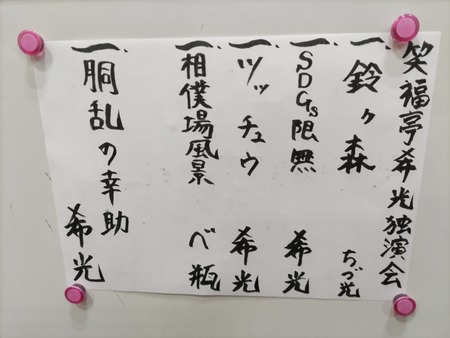 笑福亭希光独演会
一、鈴ヶ森 ちづ光
一、SDGs限無 希光
一、ツッチュウ 希光
一、相撲場風景 べ瓶
一、胴乱の幸助 希光